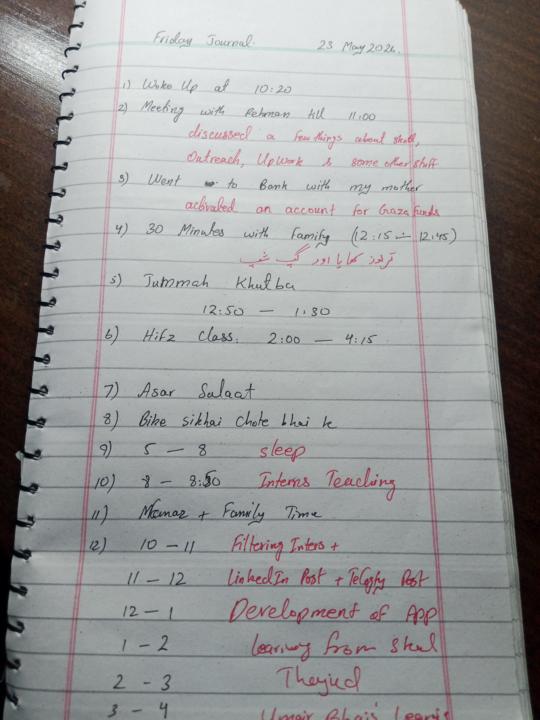 Friday Journal. 23 May 2026.
1) Woke Up at 10:20
2) Meeting with Rehman till 11:00
discussed a few things about skull,
Outreach, UpWork & some other stuff
3) Went to Bank with my mother
activated an account for Gaza funds
4) 30 Minutes with Family (12:15 — 12:45)
تربوز کھایا اور گپ شپ
5) Jummah Khutba
12:50 — 1:30
6) Hifz Class. 2:00 — 4:15
7) Asar Salaat
8) Bike sikhai chote bhai k
9) 5 — 8 sleep
10) 8 — 8:50 Interns Teaching
11) Mamaz + Family Time
12) 10 — 11 Filtering Inters +
11 — 12 LinkedIn Post + Post
12 — 1 Development of App
1 — 2 learning from
2 - 3
3 - 4 Umair Bhai's